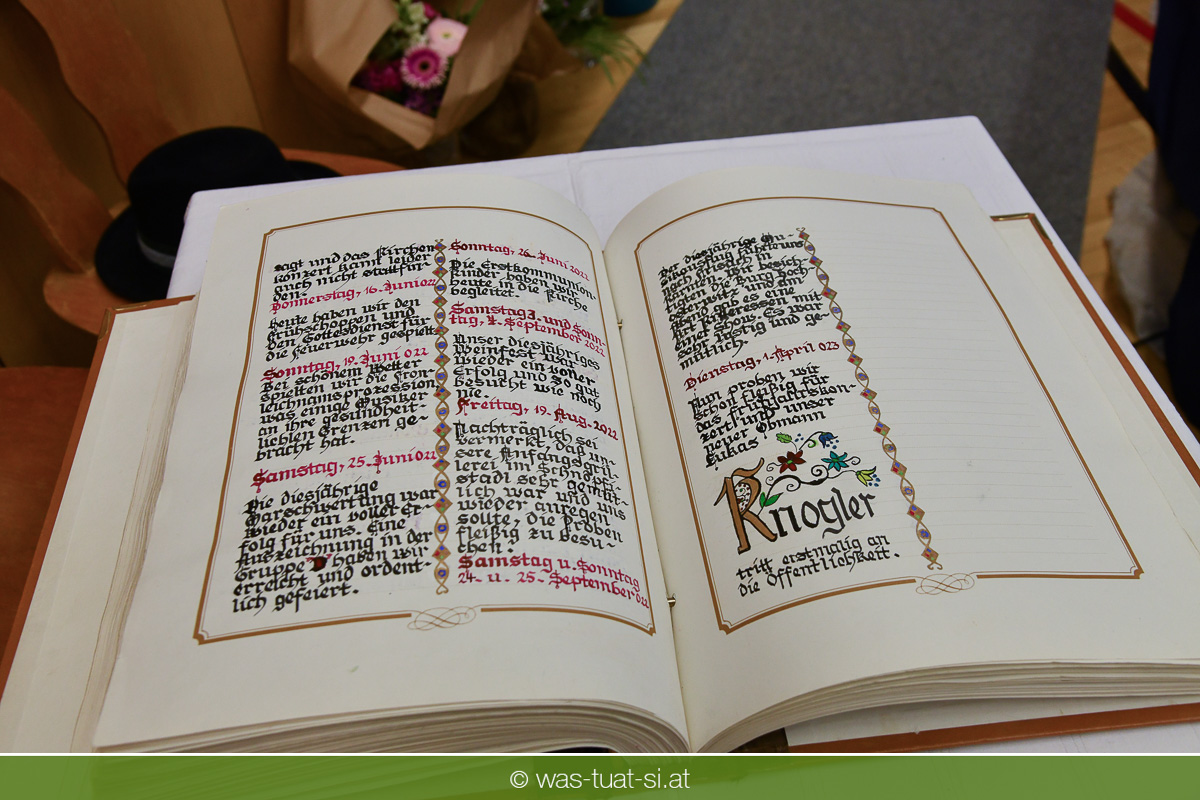 sagt und das Kirchen
konzert kann leider
auch nicht stattfin-
den.
Donnerstag, 16. Juni 022
Heute haben wir den
Frühschoppen und
den Gottesdienst für
die Feuerwehr gespielt.
Sonntag, 19. Juni 022
Bei schönem Wetter
spielten wir die Fron-
leichnamsprozession,
was einige Musiker
an ihre gesundheit-
lichen Grenzen ge-
bracht hat.
Samstag, 25. Juni 022
Die diesjährige
Marschwertung war
wieder ein voller Er-
folg für uns. Eine
Auszeichnung in der
Gruppe D haben wir
erreicht und ordent-
lich gefeiert.
Sonntag, 26. Juni 2022
Die Erstkommunion-
kinder haben wir
heute in die Kirche
begleitet.
Samstag 3. und Sonn-
tag, 4. September 2022
Unser diesjähriges
Weinfest war
wieder ein voller
Erfolg und so gut
besucht wie noch
nie.
Freitag, 19. Aug. 2022
Nachträglich sei
vermerkt, daß un-
sere Anfangsgril-
lerei im
sehr gemüt-
lich war und uns
wieder anregen
sollte, die Proben
fleißig zu besu-
chen.
Samstag u. Sonntag
24. u. 25. September 022
Der diesjährige Mu-
führte uns
nach Friesach in
Kärnten. Wir besich-
tigten die Burg Hoch-
osterwitz und am
Abend gab es eine
Ritteressen mit
Show. Es war
sehr lustig und ge-
mütlich.
Dienstag, 1. April 023
Nun proben wir
schon fleißig für
das Frühjahrskon-
zert und unser
neuer Obmann
Lukas
Knogler
tritt erstmalig an
die Öffentlichkeit.
© was-tuat-si.at